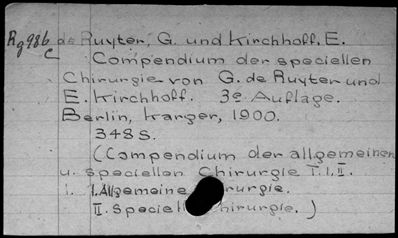 Rg98b de Ruyter, G. und Kirchhoff, E.
c Compendium der speciellen
Chirurgie von G. de Ruyter und
E. Kirchhoff. 3e Auflage.
Berlin, Karger, 1900.
348 S.
(Compendium der allgemeinen
u. speciellen Chirurgie T. I. II.
I. Allgemeine Chirurgie.
II. Speciell Chirurgie.)